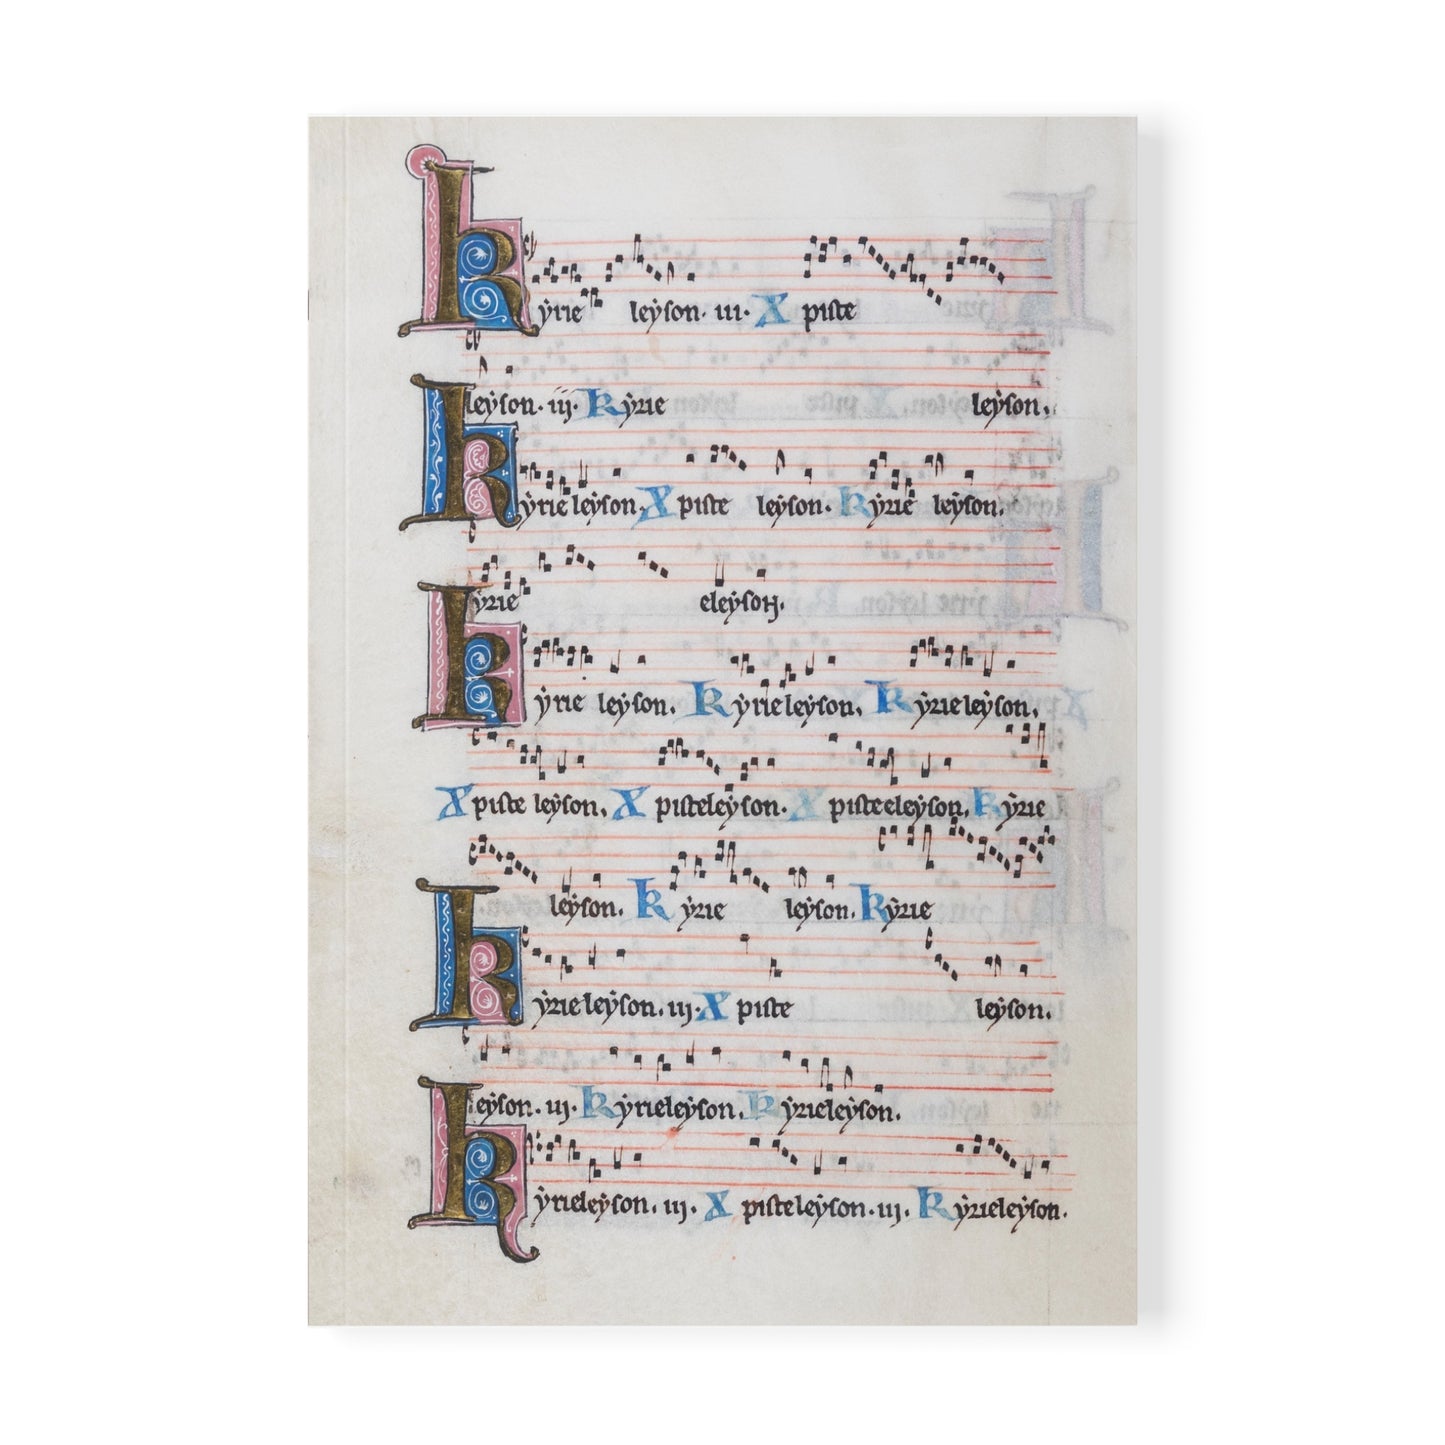 Kẏrie leẏson. iii. Xpiste
leẏson. iij. Kẏrie leẏson.
Kẏrie leẏson. Xpiste leẏson. Kẏrie leẏson.
Kẏrie eleẏson.
Kẏrie leẏson. Kẏrieleẏson. Kẏrieleẏson.
Xpiste leẏson. Xpisteleẏson. Xpisteeleẏson. Kẏrie
leẏson. Kẏrie leẏson. Kẏrie
Kẏrieleẏson. iij. Xpiste leẏson.
leẏson. iij. Kẏrieleẏson. Kẏrieleẏson.
Kẏrieleẏson. iij. Xpisteleẏson. iij. Kẏrieleẏson.